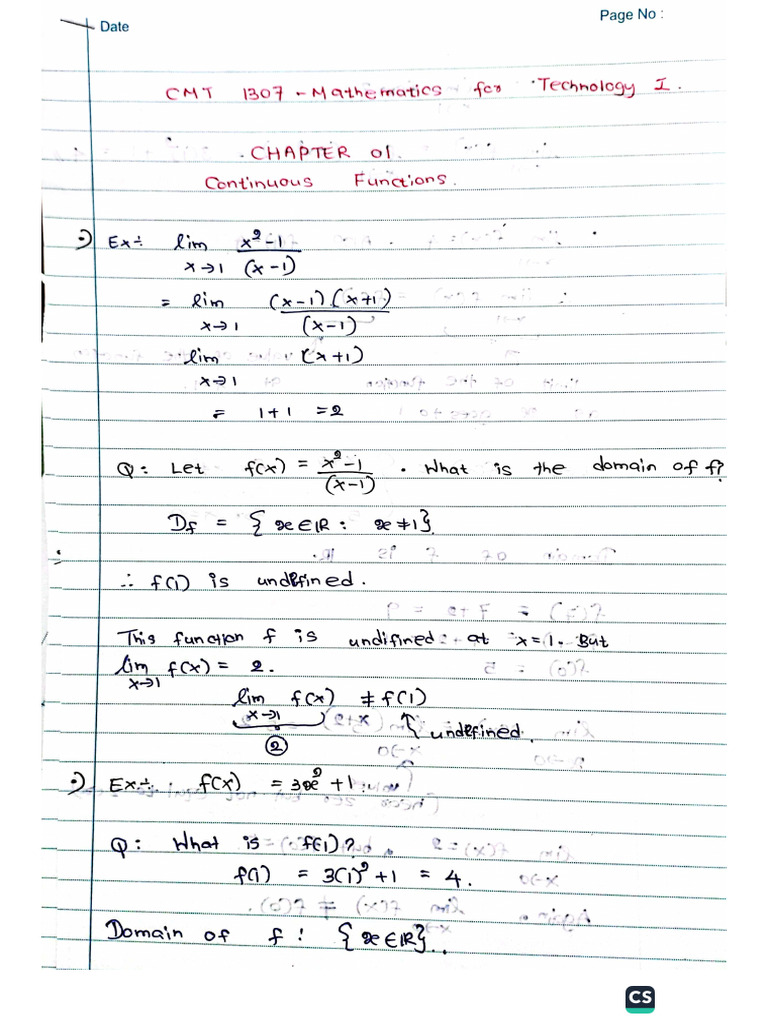 Date
Page No :
CMT 1307 - Mathematics for Technology I.
CHAPTER 01.
Continuous Functions.
•) Ex÷ lim x→1 x²-1 / (x-1)
= lim x→1 (x-1)(x+1) / (x-1)
lim x→1 (x+1)
= 1+1 =2
Q: Let f(x) = x²-1 / (x-1) . What is the domain of f?
Df = {x∈IR : x≠1}.
∴ f(1) is undefined.
This function f is undifined at x=1. But
lim x→1 f(x) = 2.
lim x→1 f(x) ≠ f(1)
② ↑ undefined.
•) Ex÷ f(x) = 3x²+1
Q: What is f(1)?
f(1) = 3(1)²+1 = 4.
Domain of f : {x∈IR}.
CS